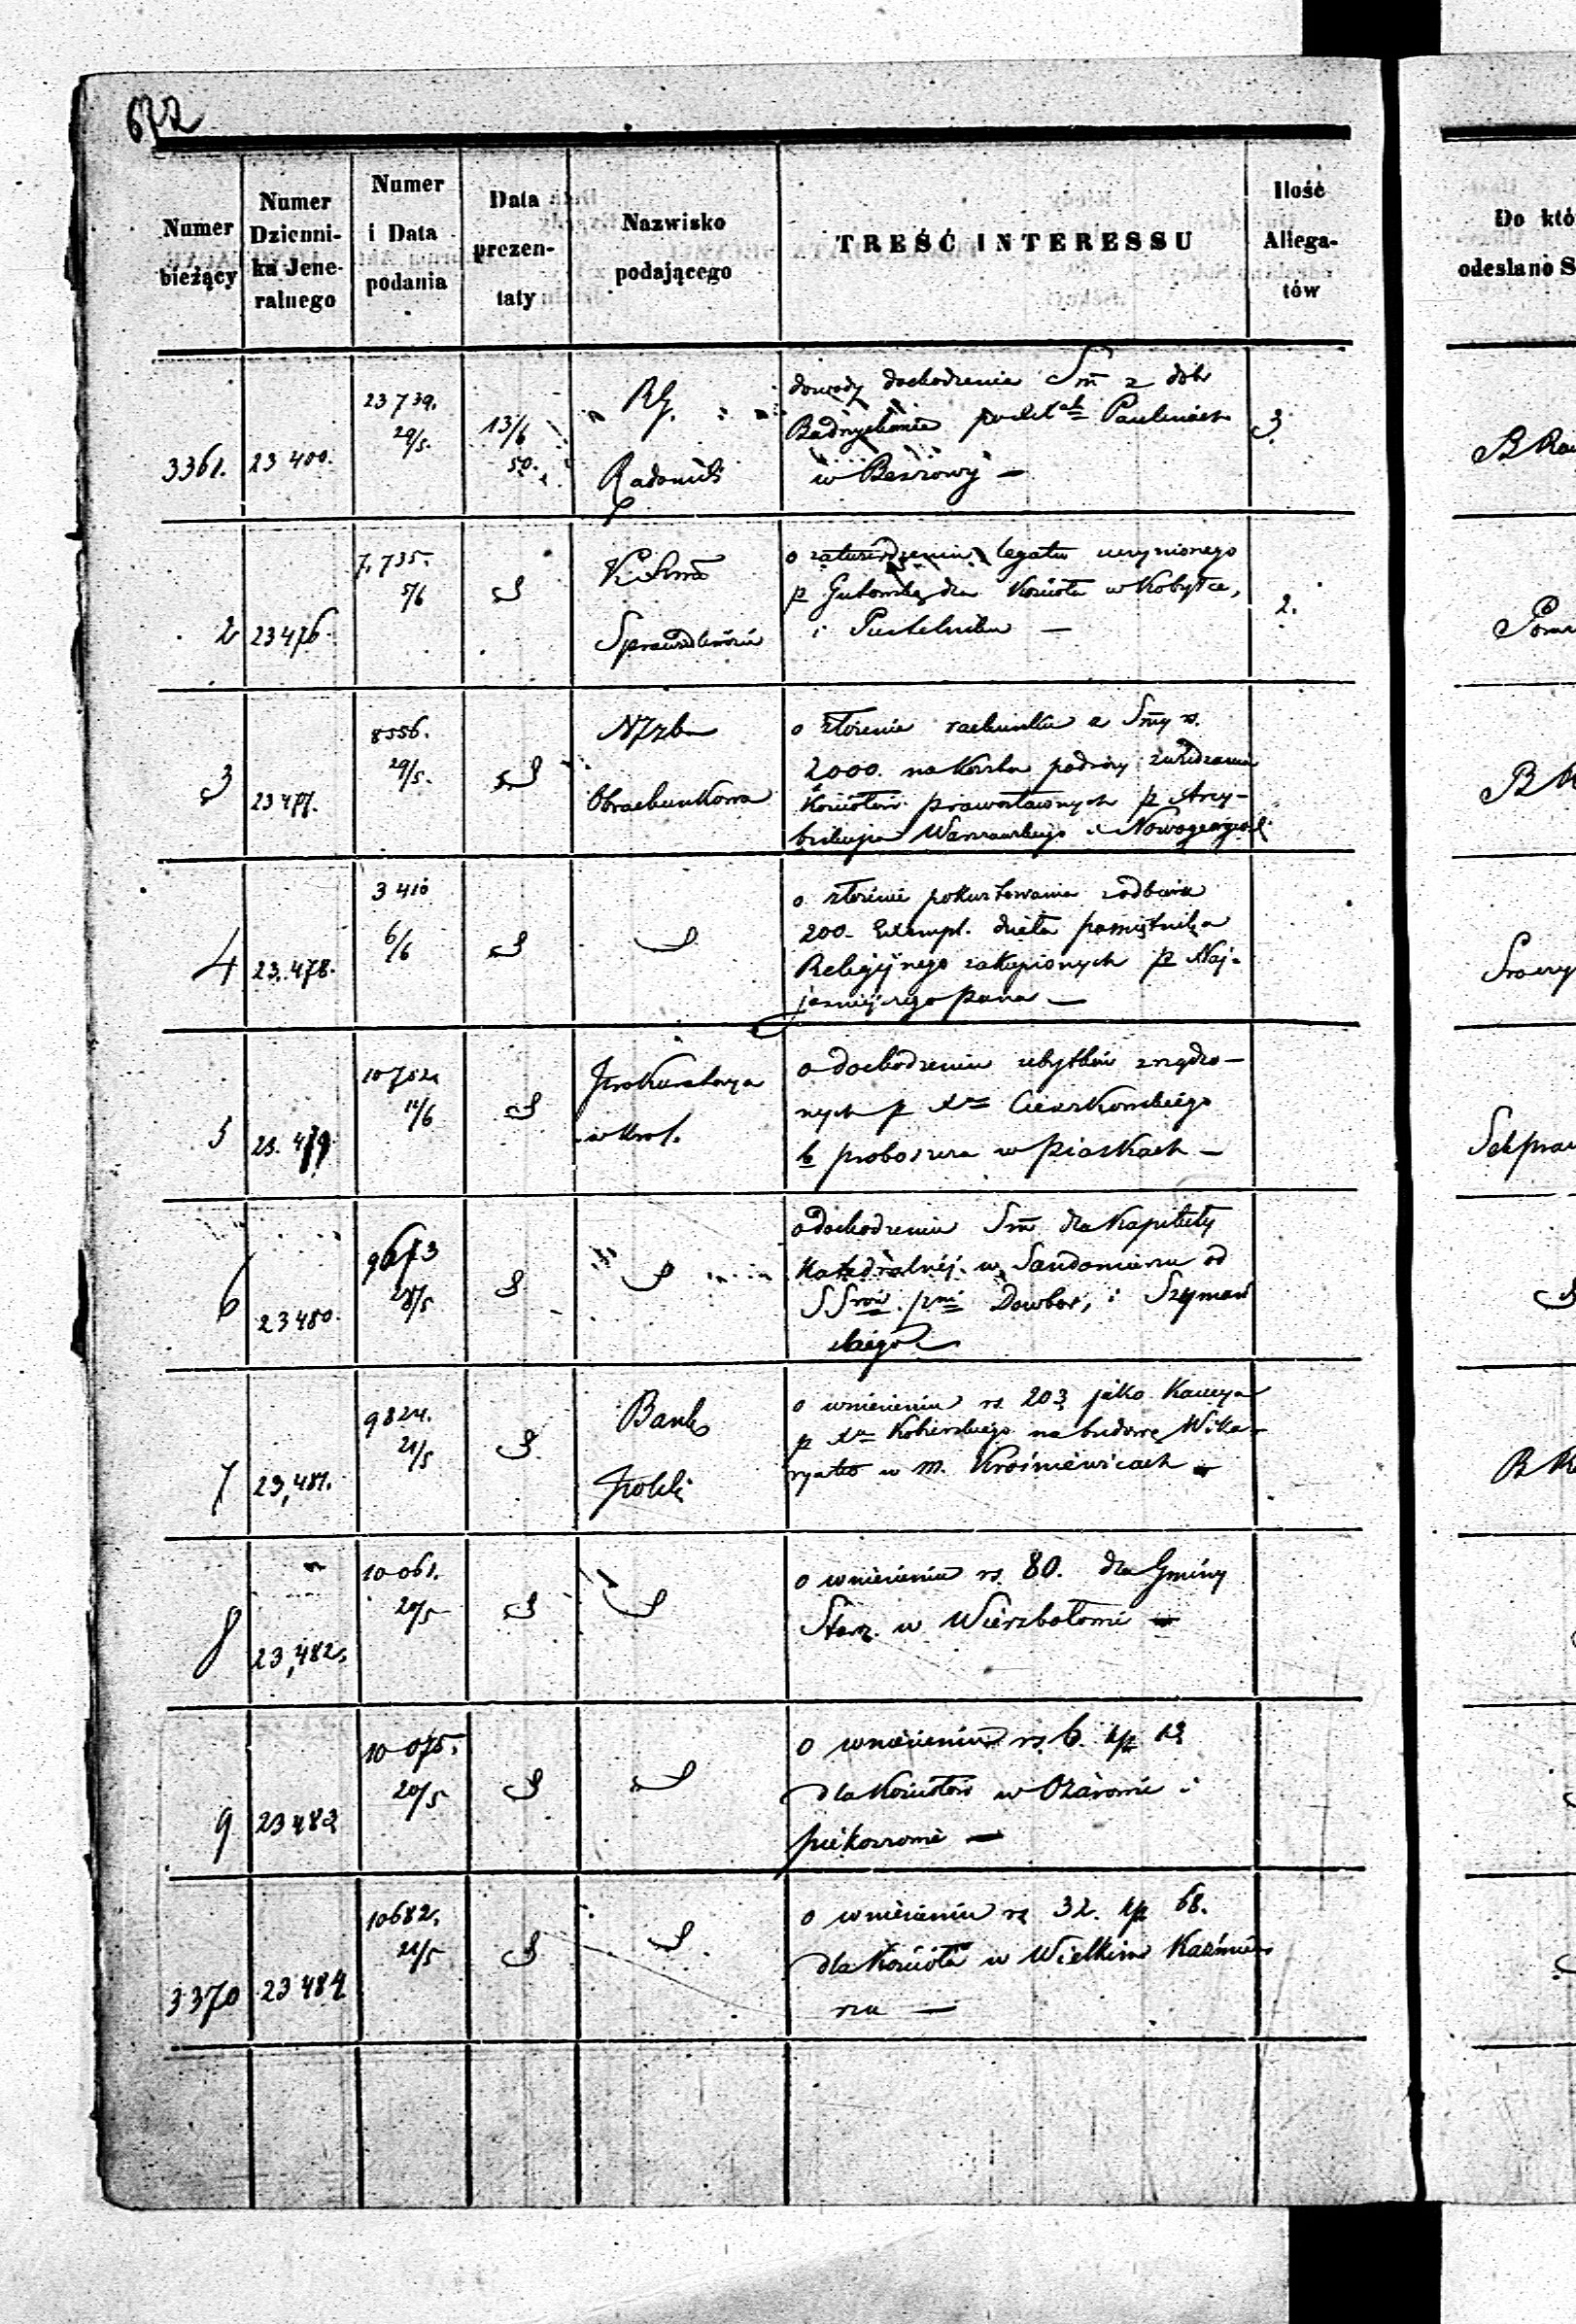 672
Numer bieżący
Numer Dzienni-ka Jene-ralnego
Numer i Data podania
Data prezen-taty
Nazwisko podającego
TREŚĆ INTERESSU
Ilość Allega-tów
Do któ
odesłano S
3361. 23 400. 23 739. 29/5. 13/6 50. RG. Radomski
dowody dochodzenia Sm z dóbr
po Paulinach
w Beszowy — 3
2 23476. 7,735. 5/6 Sprawiedliwości
o zatwierdzeniu legatu uczynionego
p Gutowską dla Kościoła w Kobyłce,
i — 2.
3 23477. 8556. 29/5. NIzba Obrachunkowa
o złożenie rachunku z Smy rs.
2000. na koszta podróży zwidzania
Kościołów prawosławnych pz Arcy-
biskupa Warszawskiego i Nowogeorgie
4 23.478. 3 410 6/6
o złożenie pokwitowania z odbioru
200. Exempl. dzieła pamiętnika
Religijnego zakupionych pz Naj-
jaśniejszego Pana —
5 23.479. 10 752 11/6 Prokuratorya w Krol.
o dochodzeniu ubytków zrządzo-
nych p Xa
b proboszcza w Piaskach —
6 23480. 9673 28/5
o dochodzeniu Sm dla Kapituły
Katedralnéj w Sandomierzu od
SSrów Dowbor, i Szymań
skiego —
7 23,481. 9824. 21/5 Bank Polski
o wniesieniu rs. 203 jako Kaucya
p Xa Kobierskiego na budowę Wika-
ryatu w m. Krośniewicach —
8 23,482. 10 061. 20/5
o wniesieniu rs. 80. dla Gminy
Starz. w Wierzbołowie —
9 23483 10 075. 20/5
o wniesieniu rs. 6. kp 13
dla Kościołów w Ożarowie i
Piekoszowie —
3370 23484 10682. 21/5
o wniesieniu rs 32. kp 68.
dla Kościoła w Wielkim Kazimie
rzu —